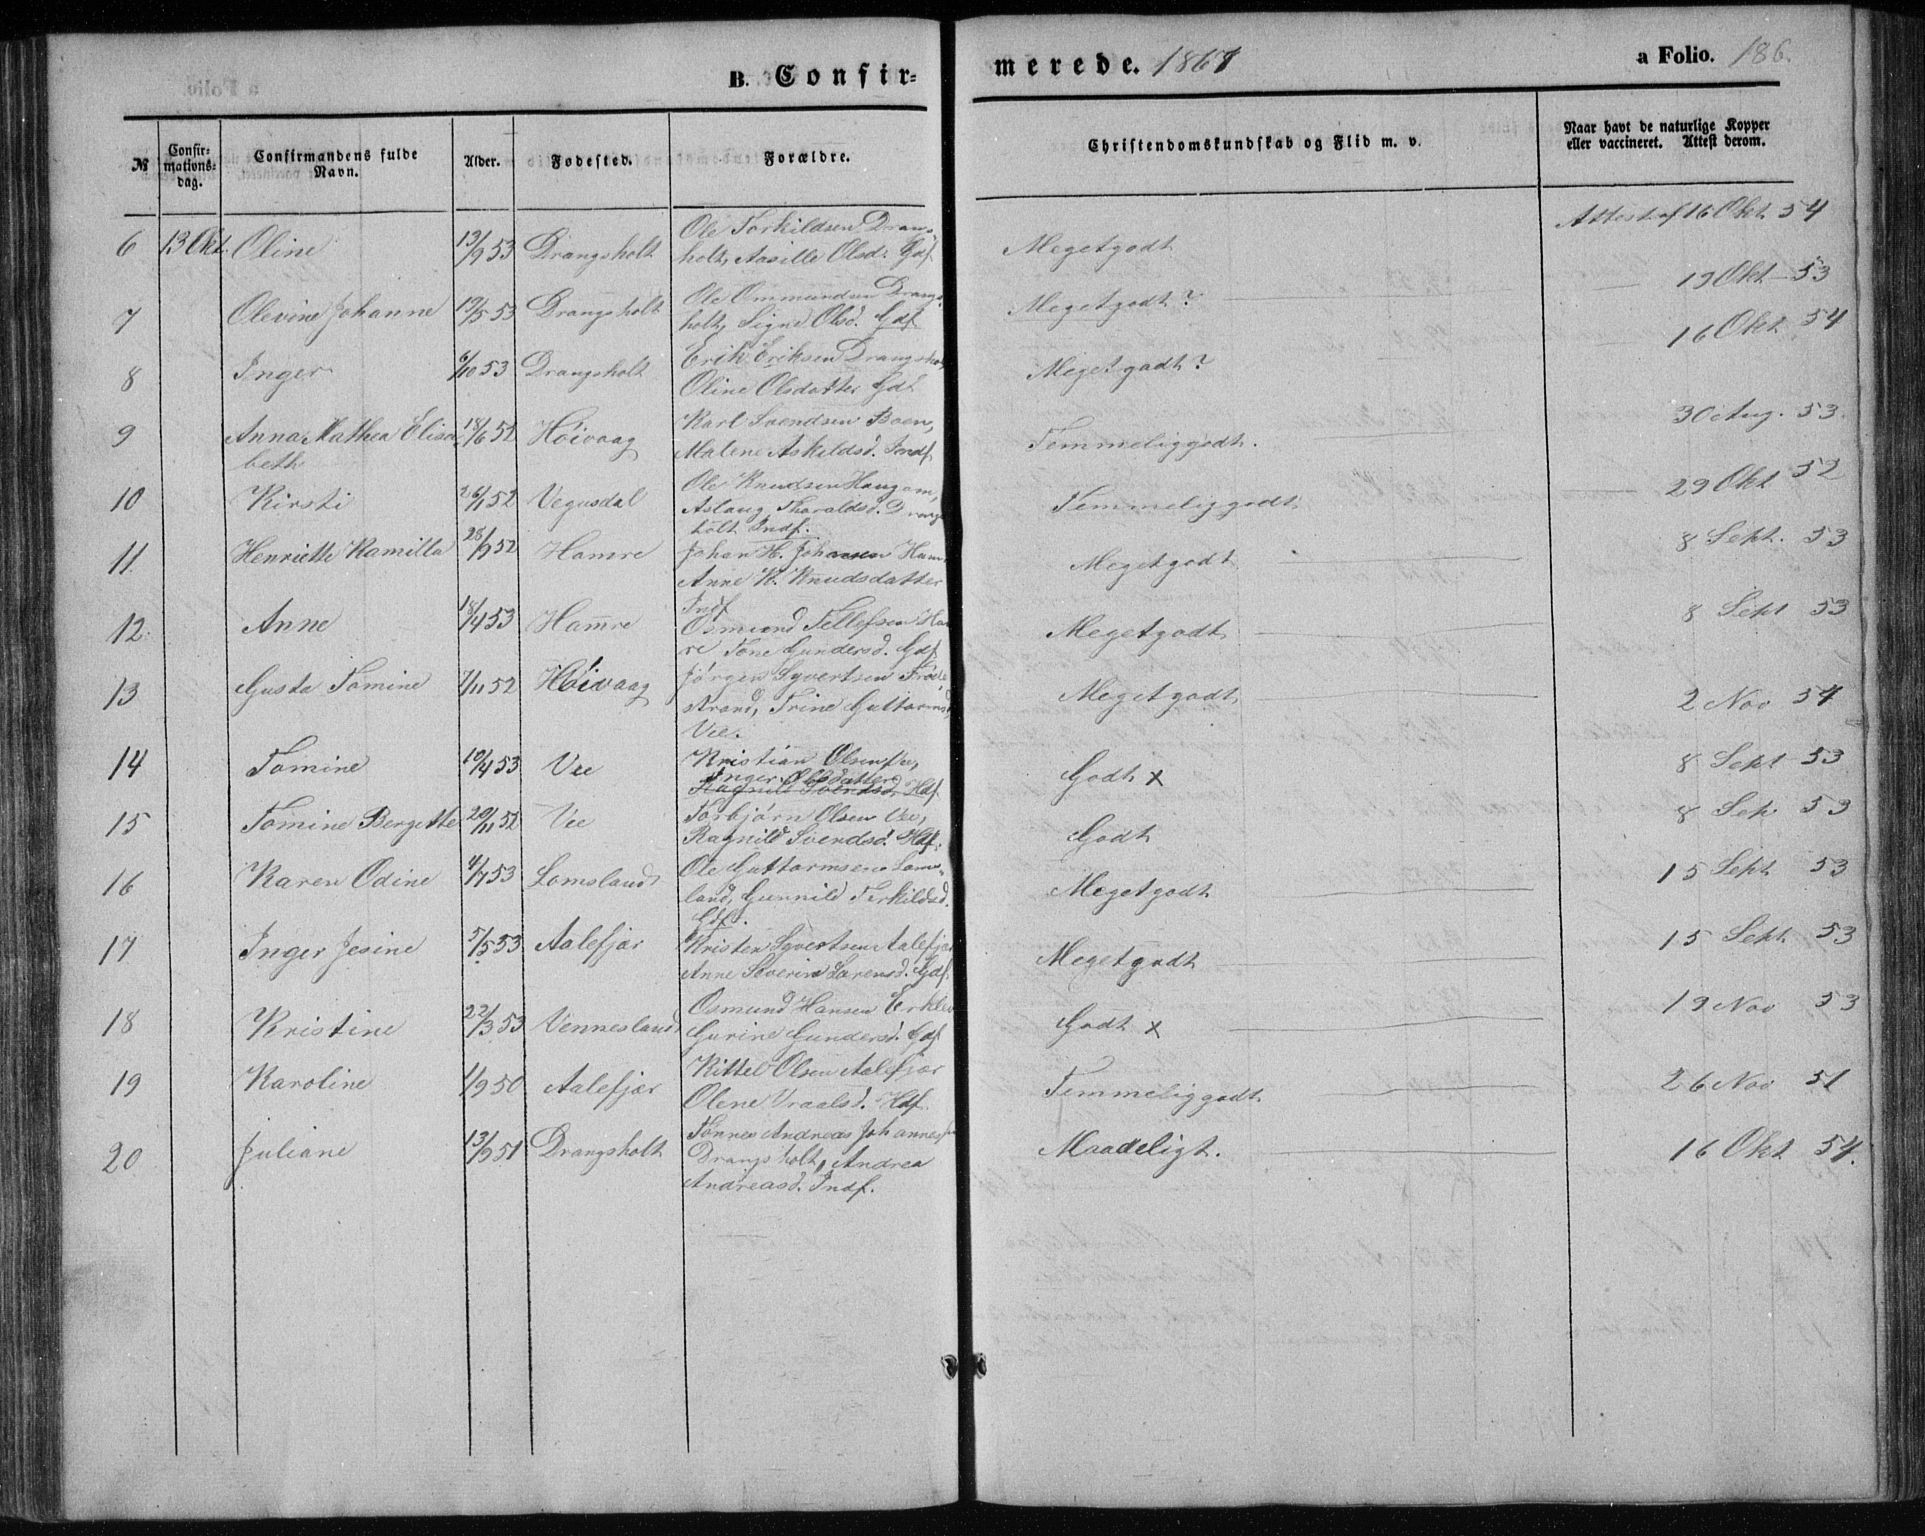 B. Confir=
merede. 1867
a Folio. 186.
№
Confir-
mations-
dag.
Confirmandens fulde
Navn.
Alder.
Fødested.
Forældre.
Christendomskundskab og Flid m. v.
Naar havt de naturlige Kopper
eller vaccineret. Attest derom.
6 13 Okt. Oline 13/9 53 Drangsholt Ole Torkildsen Drangs-
holt, Aasille Olsd. Gdf. Megetgodt Attest af 16 Okt. 54
7 Olevine Johanne 19/5 53 Drangsholt Ole Ommundsen Drangs-
holt, Signe Olsd. Gdf. Megetgodt? 19 Okt 53
8 Inger 6/10 53 Drangsholt Erik Eriksen Drangsholt,
Oline Olsdatter Gdf Megetgodt? 16 Okt. 54
9 Anna Mathea Elisa- 18/6 52 Höivaag Karl Svendsen Boen,
beth Malene Askildsd. Indf. Temmeliggodt. 30 Aug. 53
10 Kirsti 26/1 52 Vegusdal Ole Knudsen Haugom,
Aslaug Tharaldsd. Drangs-
holt Indf. Temmeliggodt 29 Okt 52
11 Henriette Kamilla 28/9 52 Hamre Johan H. Johansen Ham-
Anne K. Knudsdatter
Indf Megetgodt 8 Sept. 53
12. Anne 18/4 53 Hamre Osmund Tellefsen Ham-
re Tone Gundersd. Gdf. Megetgodt 8 Sept 53
13 Gusta Tomine 7/11 52 Höivaag Jörgen Syvertsen
strand, Trine Guttormsd.
Vee. Megetgodt 2 Nov 54
14 Tomine 10/4 53 Vee Kristian Olsen Vee,
Inger Olsdatter
Ragnild Svendsd. Hdf. Godt x 8 Sept 53
15 Tomine Bergitte 20/11 52 Vee Torbjörn Olsen Vee,
Ragnild Svendsd. Hdf. Godt 8 Sep. 53
16 Karen Odine 4/7 53 Lomsland Ole Guttormsen Loms-
land, Gunnild Terkildsd.
Gdf. Megetgodt 15 Sept 53
17 Inger Jesine 5/5 53 Aalefjær Kristen Syvertsen Aalefjær
Anne Severine Sörensd. Gdf. Megetgodt 15 Sept. 53
18 Kristine 22/3 53 Vennesland Osmund Hansen Erklev
Gurine Gundersd. Gdf Godt x 19 Nov 53
19 Karoline 1/9 50 Aalefjær Kittel Olsen Aalefjær
Olene Vraalsd. Hdf. Temmeliggodt 26 Nov 51
20 Juliane 13/9 51 Drangsholt Tönnes Andreas Johannesen
Drangsholt, Andrea
Andreasd. Indf. Maadeligt. 16 Okt 54.